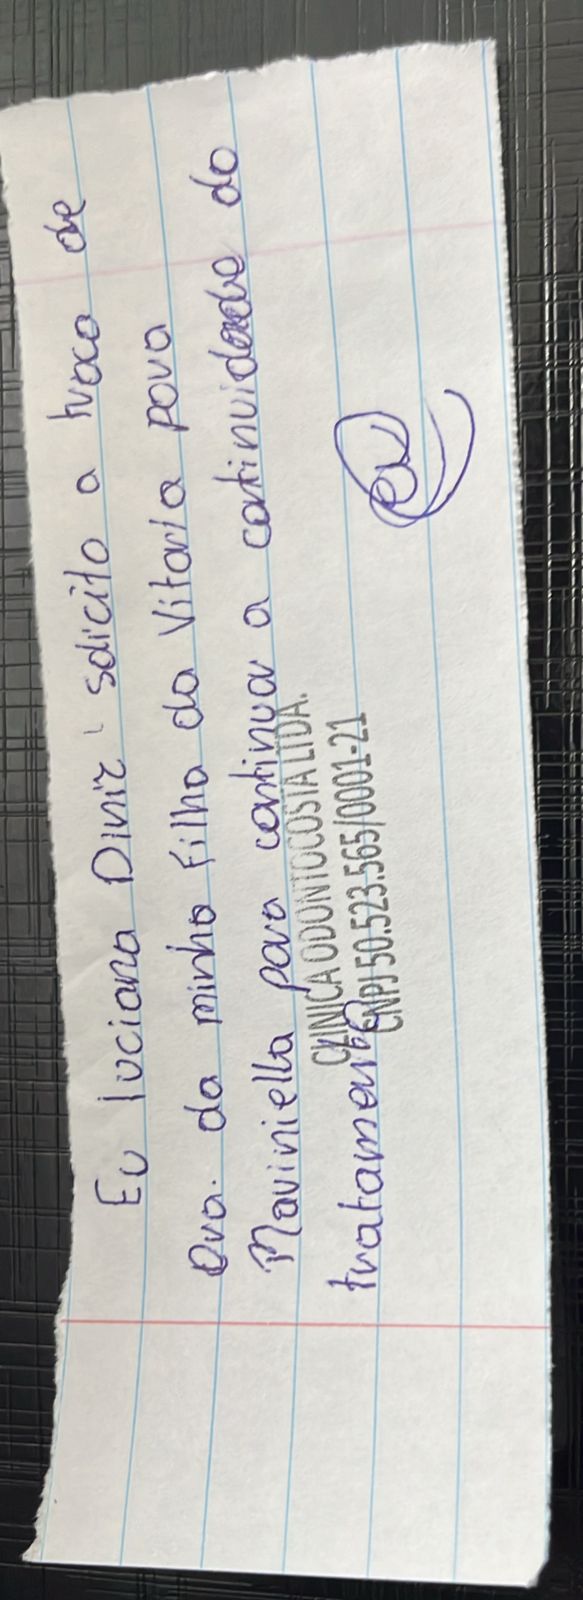 Eu Luciana Diniz solicito a troca de
Dra. da minha filha da Vitoria para
Maviniella para continuar a continuidade do
tratamento
CLINICA ODONTOCOSTA LTDA.
CNPJ 50.523.565/0001-21